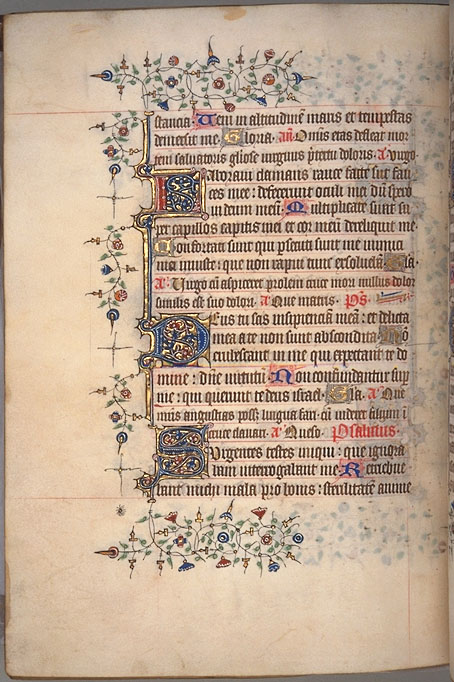 stancia. Veni in altitudinē maris et tempestas
demersit me. Gloria. añ. Om̄is etas defleat mor
tem saluatoris gliose uirginis p̄textu doloris. a. virgo
Laboraui clamans rauce facte sūt fau
ces mee: defecerunt oculi mei dū spero
in deum meū. Multiplicati sunt su
per capillos capitis mei et cor meū dereliquit me.
Confortati sunt qui psecuti sunt me inimici
mei iniuste: que non rapui tunc exsoluebā. Gla.
a. Virgo cū aspiceret prolem cruce mori nullus dolor
similis est suo dolori. a. Que matris. Ps.
Deus tu scis insipienciam meā: et delicta
mea a te non sunt abscondita. Nō
erubescant in me qui expectant te do
mine: dn̄e uirtutū. Non confundantur sup
me: qui querunt te deus israel. Gla. a. Que
nimis angustias poss; lingua fari. cū uideret filium ī
cruce clauari. a. Queso. Psalmus.
Surgentes testes iniqui: que ignora
bam interrogabant me. Retribue
bant michi mala pro bonis: sterilitatē anime